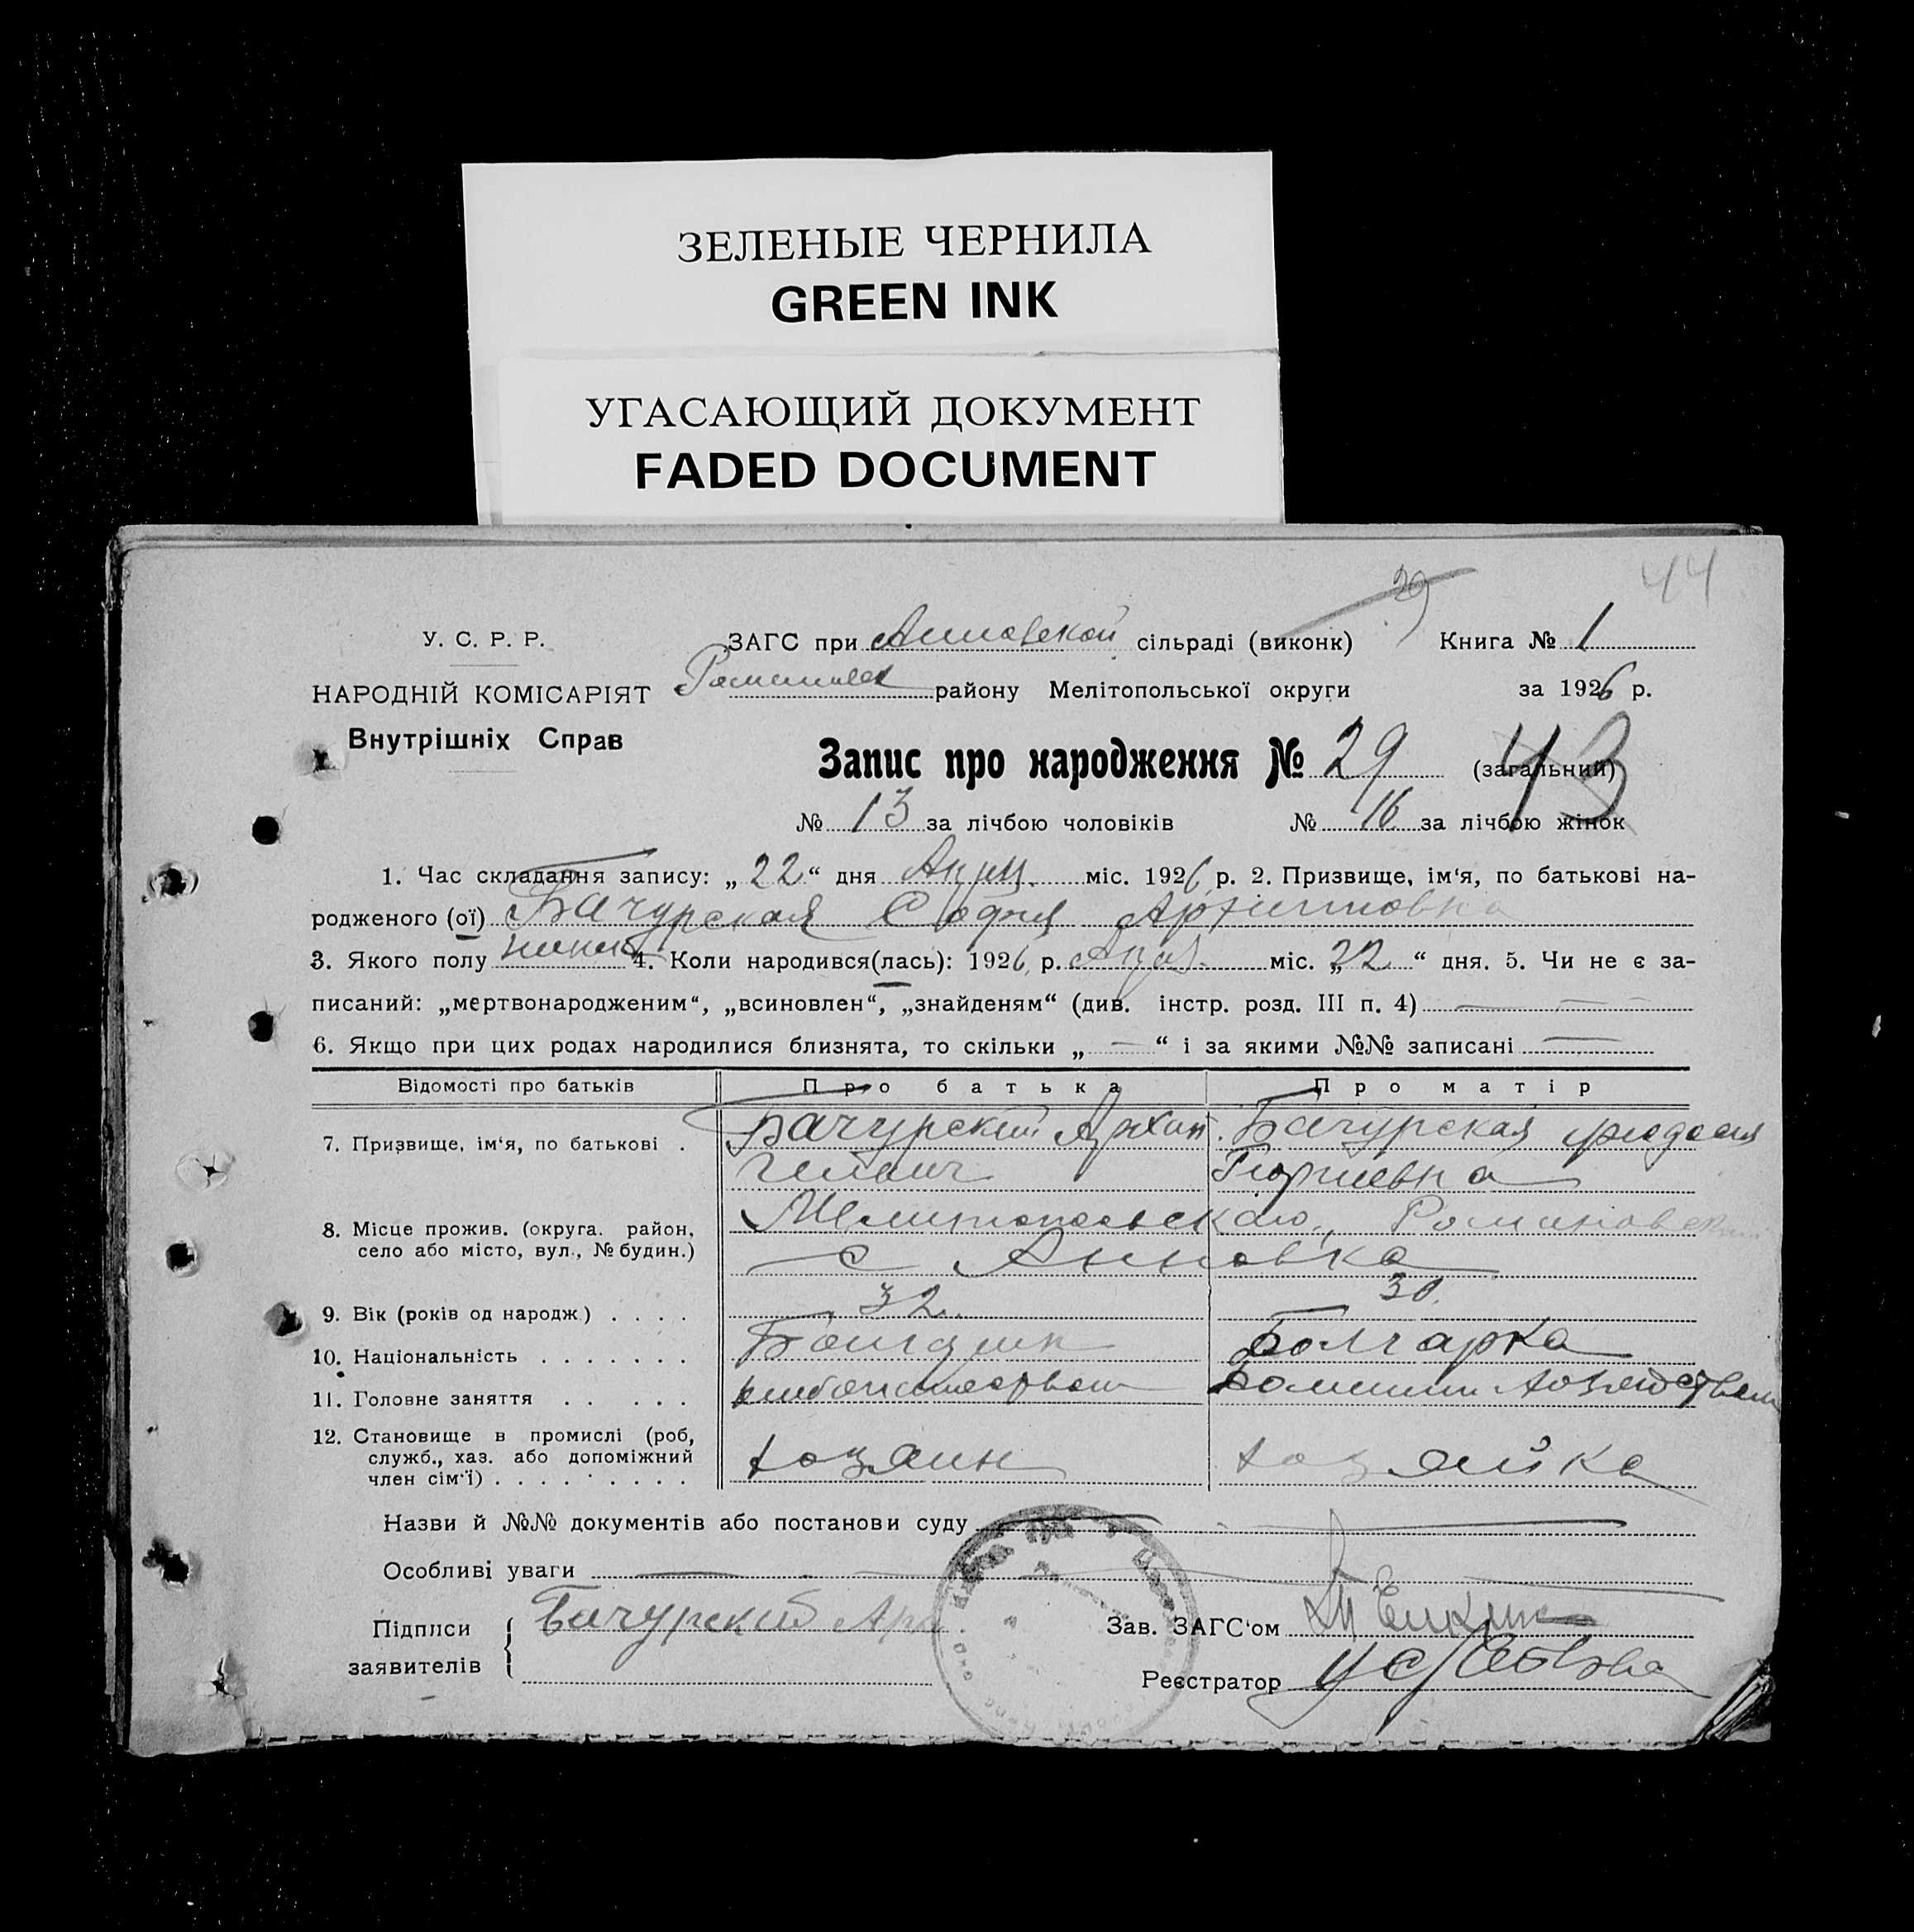 ЗЕЛЕНЫЕ ЧЕРНИЛА
GREEN INK
УГАСАЮЩИЙ ДОКУМЕНТ
FADED DOCUMENT
29 44
У. С. Р. Р. ЗАГС при сільраді (виконк) Книга № 1
НАРОДНІЙ КОМІСАРІЯТ району Мелітопольської округи за 1926 р.
Внутрішніх Справ
Запис про народження № 29 (загальний) 43
№ 13 за лічбою чоловіків № 16 за лічбою жінок
1. Час складання запису: „22“ дня міс. 1926 р. 2. Призвище, ім‘я, по батькові на-
родженого (ої) Бачурская София Архиповна
3. Якого полу 4. Коли народився(лась): 1926 р. міс. „22“ дня. 5. Чи не є за-
писаний: „мертвонародженим“, „всиновлен“, „знайденям“ (див. інстр. розд. III п. 4)
6. Якщо при цих родах народилися близнята, то скільки „ — “ і за якими №№ записані —
Відомості про батьків Про батька Про матір
7. Призвище, ім‘я, по батькові . Бачурский Архип. Бачурская
Георгиевна
8. Місце прожив. (округа. район, Романовск
село або місто, вул., № будин.) с Анновка
9. Вік (років од народж.) . . . . 32 30
10. Національність . . . . . . . Болгарка
11. Головне заняття . . . . .
12. Становище в промислі (роб,
служб., хаз. або допоміжний хозяин хозяйка
член сім‘ї) . . . . . . . . .
Назви й №№ документів або постанови суду
Особливі уваги
Підписи Бачурский Арх Зав. ЗАГС‘ом
заявителів Реєстратор